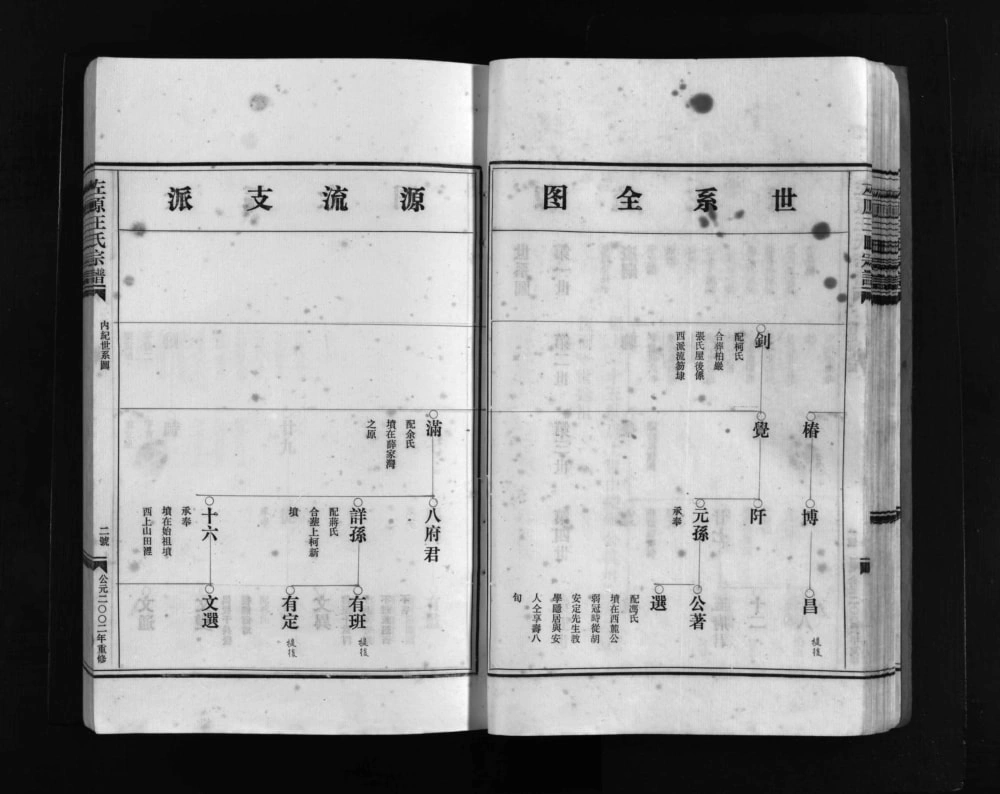 世系全图
椿
博
昌
後
釗
配柯氏
合葬柏巖
張氏屋後係
西派流蒻埭
覺
阡
元孫
承奉
公著
選
配馮氏
墳在西龍公
弱冠時從胡
安定先生教
學隱居與安
人仝享壽八
旬
源流支派
滿
配余氏
墳在薛家灣
之原
八府君
詳孫
配蔣氏
合葬上柯新
墳
有班
後
有定
後
十六
承奉
墳在始祖墳
西上山田裡
文選
左原王氏宗譜
內紀世系圖
二號
公元二〇〇二年重修